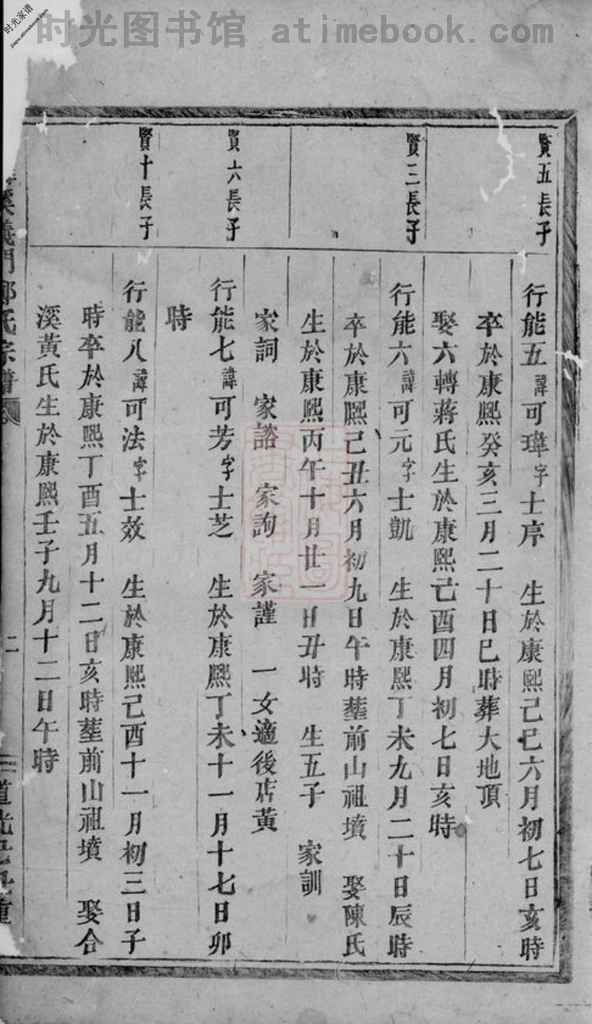 时光图书馆 atimebook.com
时光家谱
賢五長子
行能五諱可瑋字士序 生於康熙己巳六月初七日亥時
卒於康熙癸亥三月二十日巳時葬大地頂
娶六轉蔣氏生於康熙己酉四月初七日亥時
賢三長子
行能六諱可元字士凱 生於康熙丁未九月二十日辰時
卒於康熙己丑六月初九日午時塟前山祖墳 娶陳氏
生於康熙丙午十月廿一日丑時 生五子 家訓
家詞 家諮 家詢 家謹 一女適後店黃
賢六長子
行能七諱可芳字士芝 生於康熙丁未十一月十七日卯
時
賢十長子
行能八諱可法字士效 生於康熙己酉十一月初三日子
時卒於康熙丁酉五月十二日亥時塟前山祖墳 娶合
溪黃氏生於康熙壬子九月十二日午時
溪義門鄭氏宗譜 二 道光